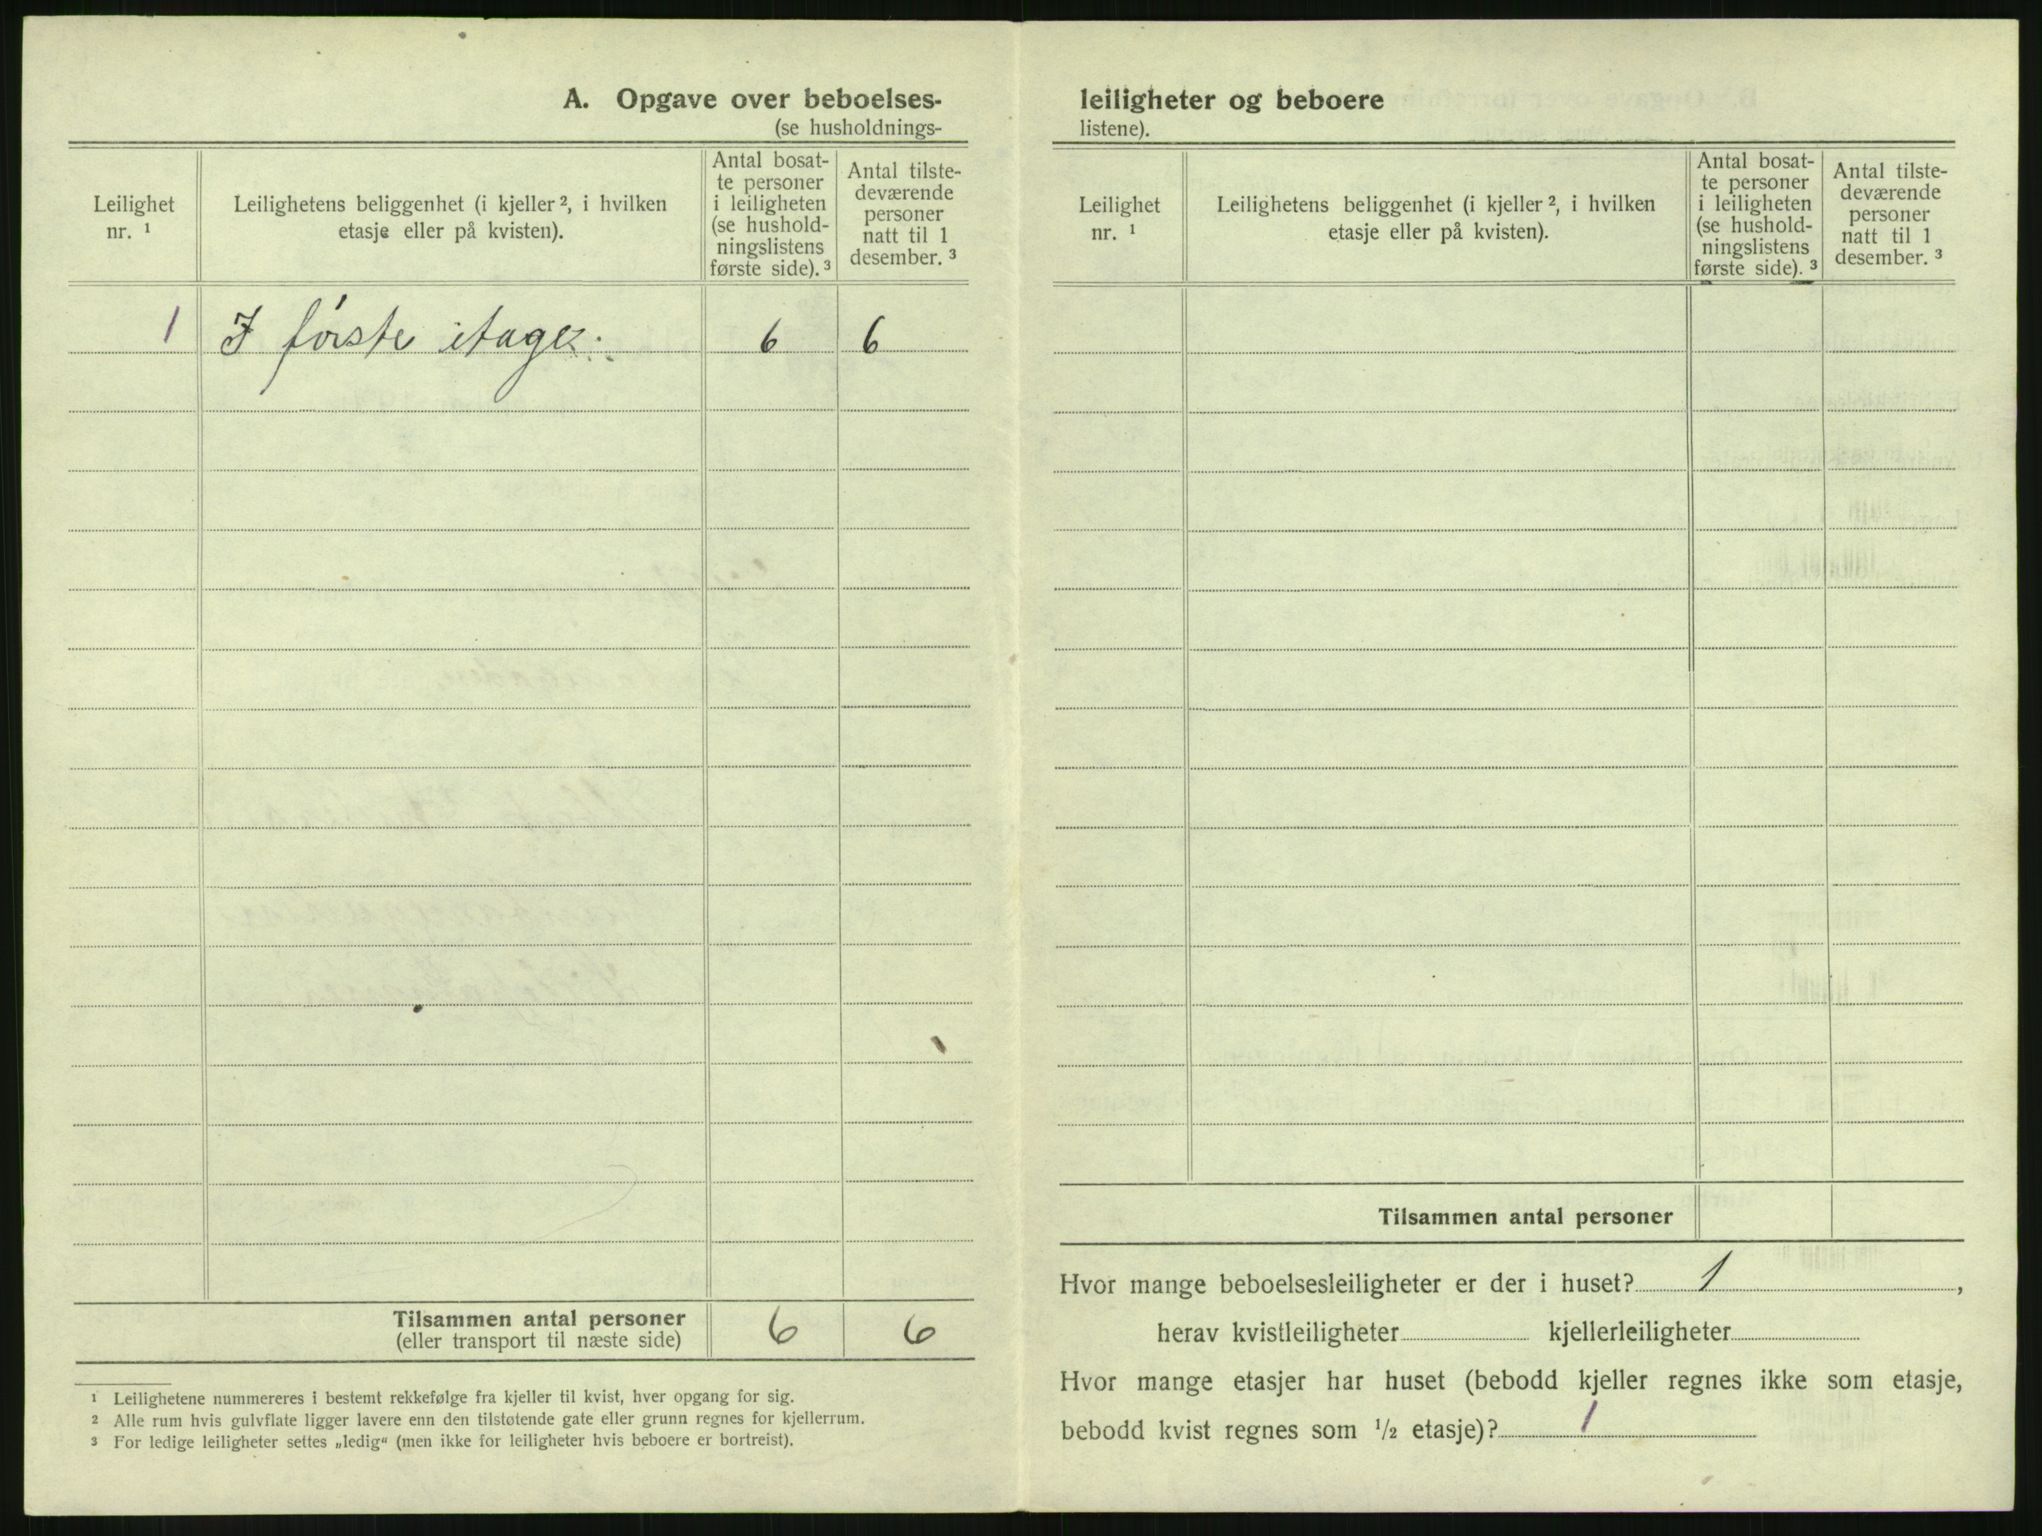 A. Opgave over beboelses-
(se husholdnings-
Leilighet
nr. 1
Leilighetens beliggenhet (i kjeller 2, i hvilken
etasje eller på kvisten).
Antal bosat-
te personer
i leiligheten
(se hushold-
ningslistens
første side). 3
Antal tilste-
deværende
personer
natt til 1
desember. 3
1 I første etage. 6 6
Tilsammen antal personer 6 6
(eller transport til næste side)
1 Leilighetene nummereres i bestemt rekkefølge fra kjeller til kvist, hver opgang for sig.
2 Alle rum hvis gulvflate ligger lavere enn den tilstøtende gate eller grunn regnes for kjellerrum.
3 For ledige leiligheter settes „ledig“ (men ikke for leiligheter hvis beboere er bortreist).
leiligheter og beboere
listene).
Leilighet
nr. 1
Leilighetens beliggenhet (i kjeller 2, i hvilken
etasje eller på kvisten).
Antal bosat-
te personer
i leiligheten
(se hushold-
ningslistens
første side). 3
Antal tilste-
deværende
personer
natt til 1
desember. 3
Tilsammen antal personer
Hvor mange beboelsesleiligheter er der i huset? 1,
herav kvistleiligheter kjellerleiligheter
Hvor mange etasjer har huset (bebodd kjeller regnes ikke som etasje,
bebodd kvist regnes som 1/2 etasje)? 1